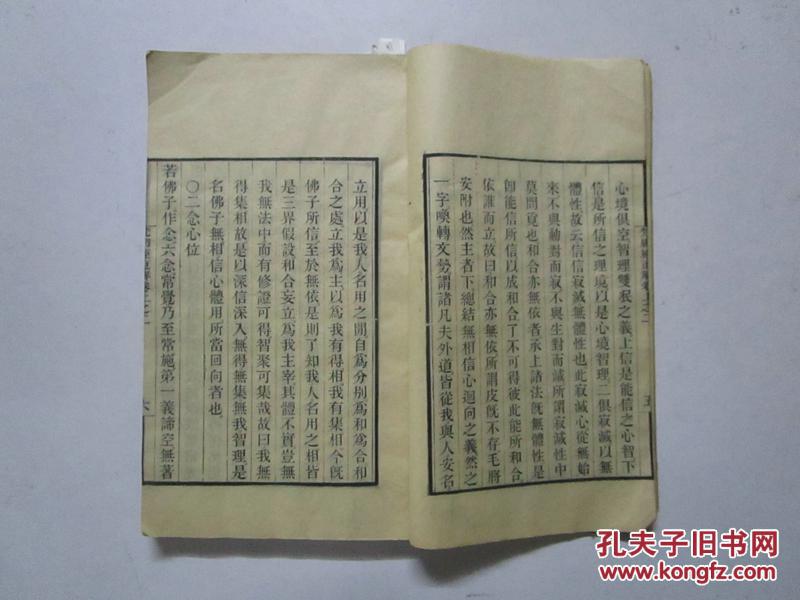 心境俱空智理雙泯之義上信是能信之心智下
信是所信之理境以是心境智理二俱寂滅以無
體性故云信信寂滅無體性也此寂滅心從無始
來不與動對而寂不與生對而滅所謂寂滅性中
莫問覓也和合亦無依者承上諸法既無體性是
卽能信所信以成和合了不可得彼此能所和合
依誰而立故曰和合亦無依所謂皮既不存毛將
安附也然主者下總結無相信心迴向之義然之
一字喚轉文勢謂諸凡夫外道皆從我與人安名
五
立用以是我人名用之閒自爲分別爲和爲合和
合之處立我爲主以爲我有得相我有集相今既
佛子所信至於無依是則了知我人名用之相皆
是三界假設和合妄立爲我主宰其體不實豈無
我無法中而有修證可得智聚可集哉故曰我無
得集相故是以深信深入無得無集無我智理是
名佛子無相信心體用所當回向者也
〇二念心位
若佛子作念六念常覺乃至常施第一義諦空無著
六
孔夫子旧书网
www.kongfz.com